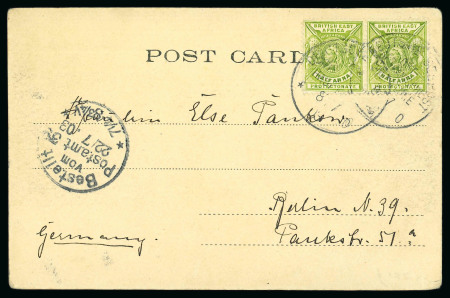 BRITISH EAST AFRICA BRITISH EAST AFRICA
HALF ANNA HALF ANNA
PROTECTORATE PROTECTORATE
POST CARD
Else Pankow
Berlin N. 39.
Pankstr. 51 a
Germany.
Bestellt
vom
Postamt 39
22/7
03